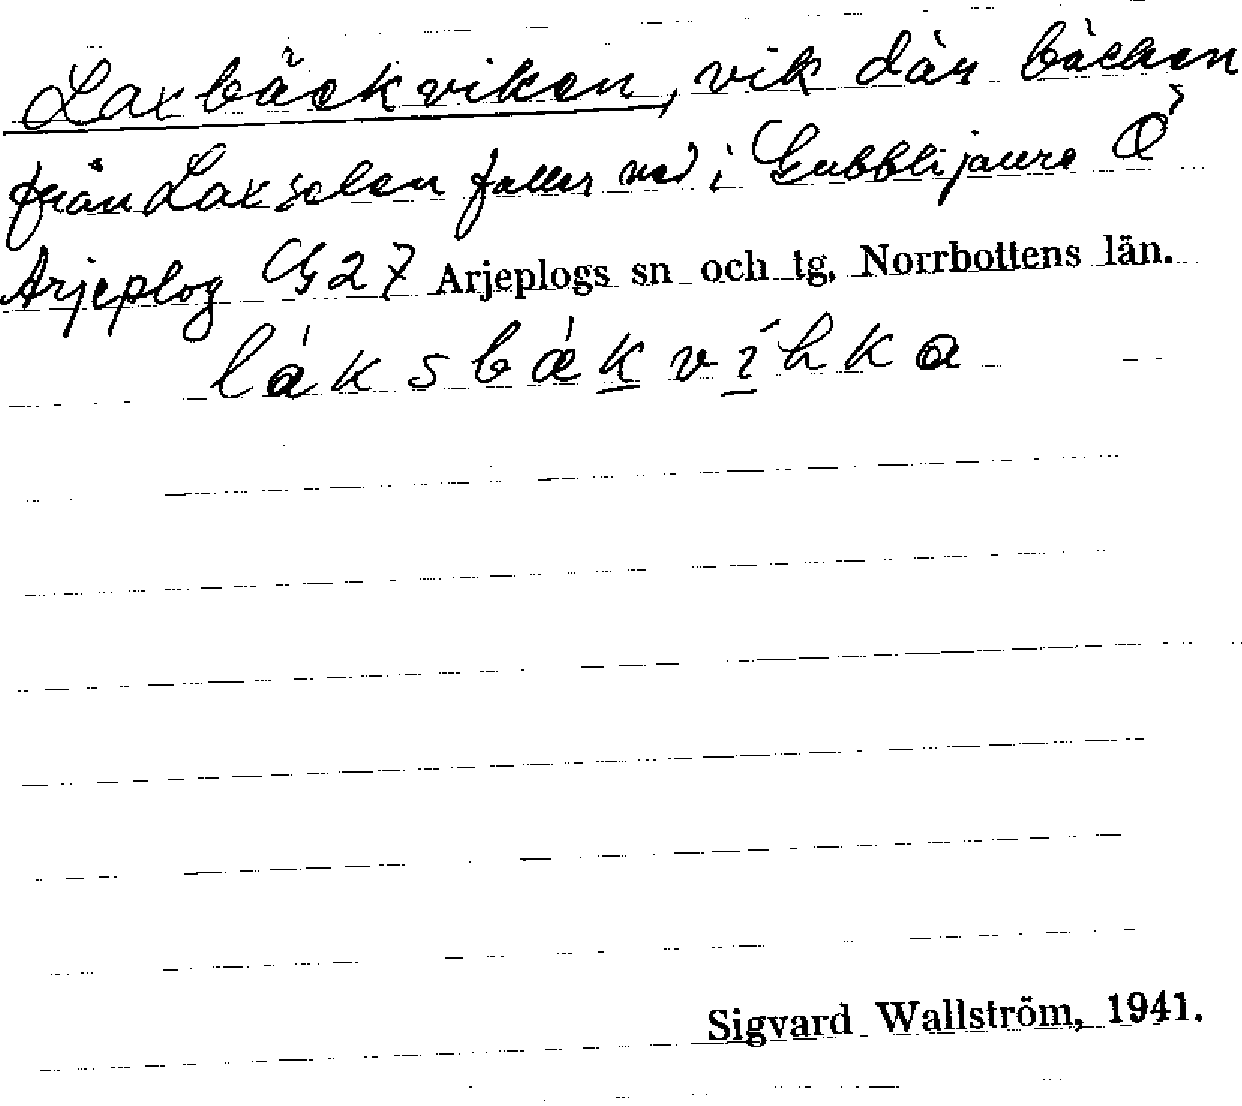 Laxbäckviken, vik där bäcken
från Laxselen faller ned i Gubblijaure Ö
Arjeplog G 27 Arjeplogs sn och tg, Norrbottens län.
láksbákvíhka
Sigvard Wallström, 1941.